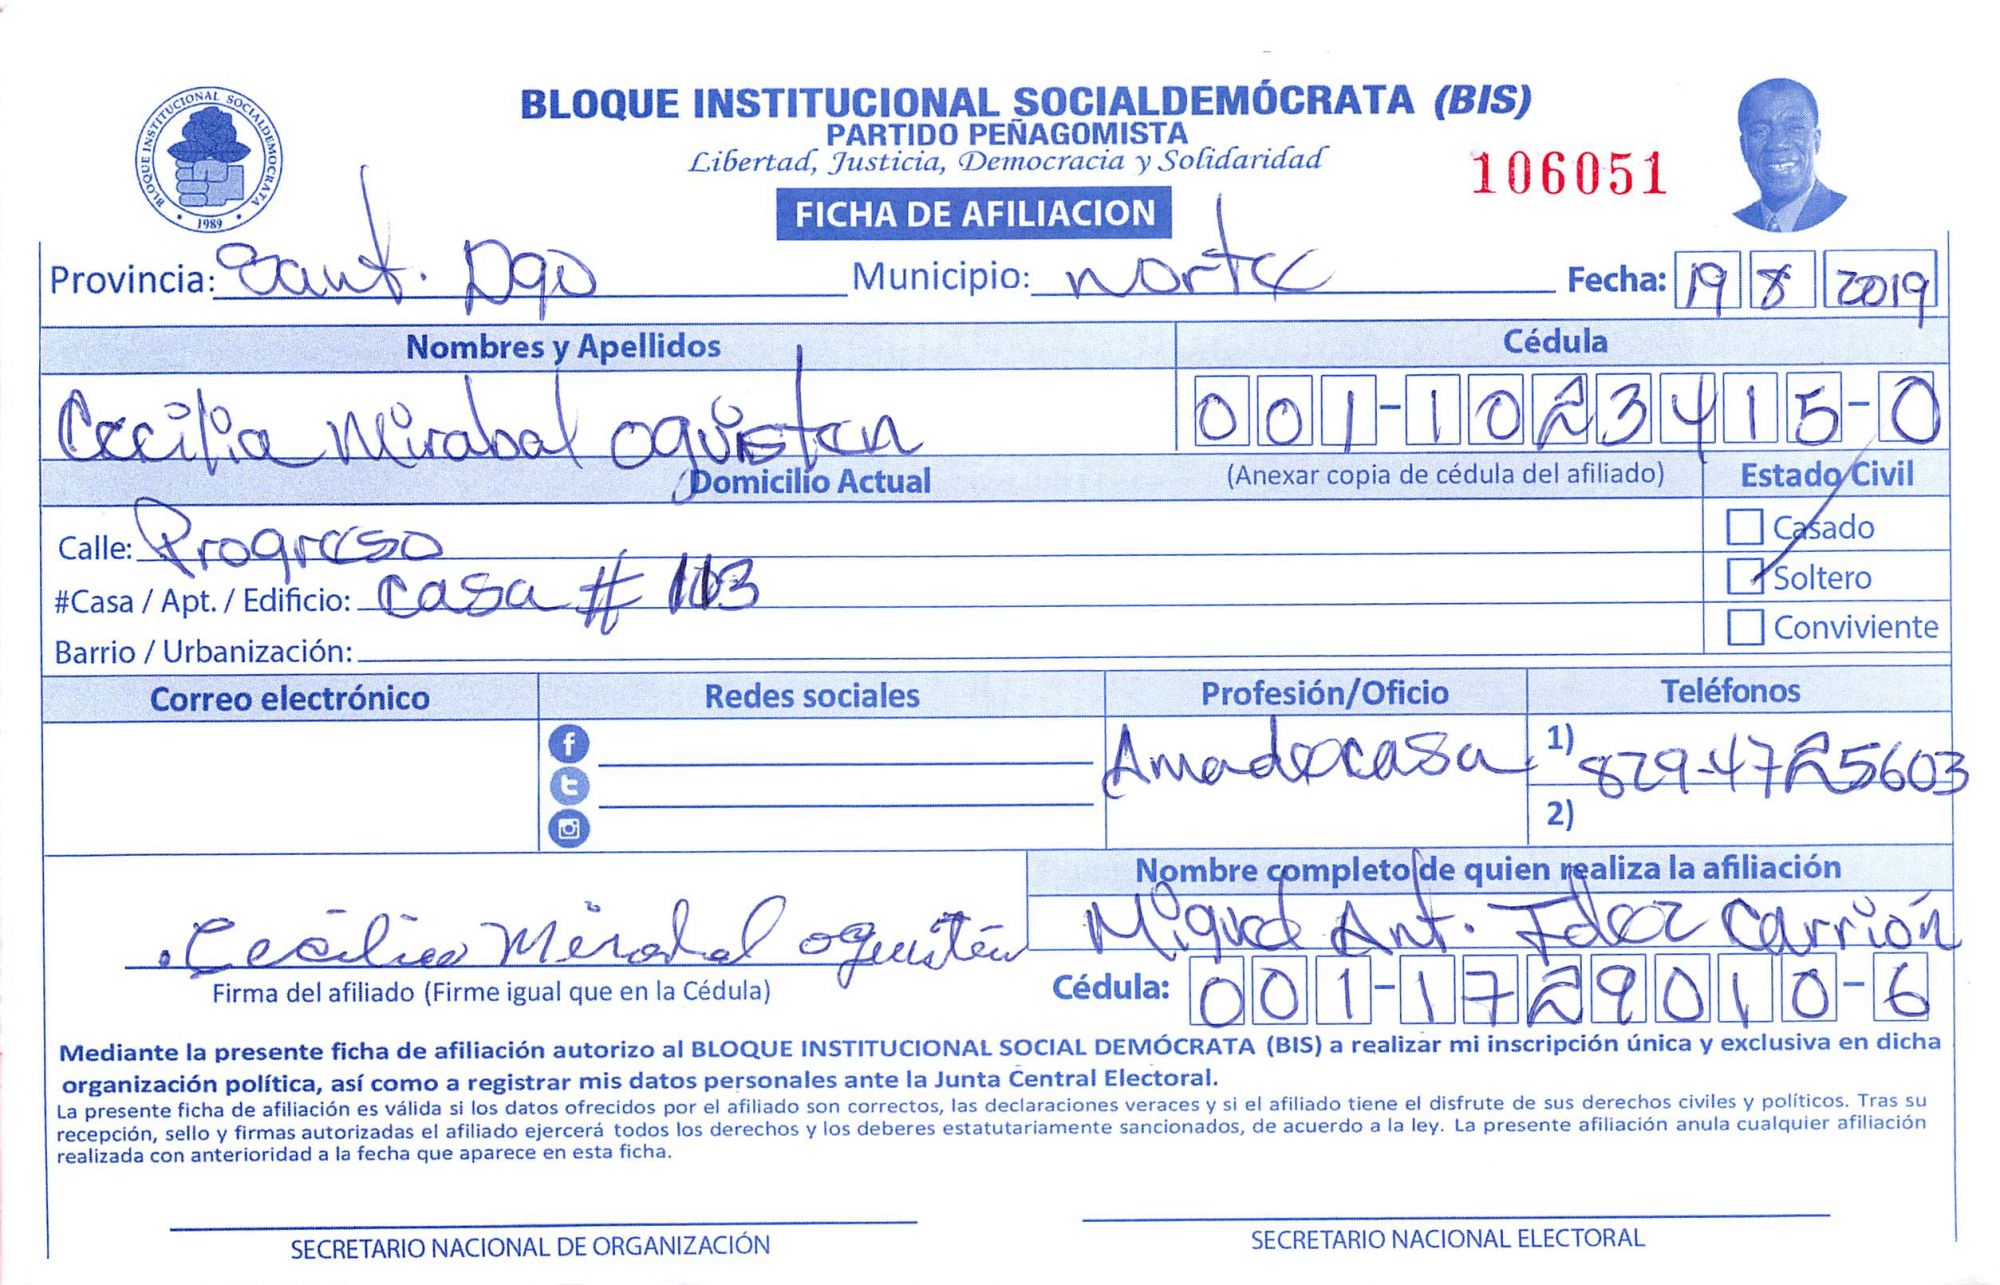 BLOQUE INSTITUCIONAL SOCIALDEMÓCRATA (BIS)
PARTIDO PEÑAGOMISTA
Libertad, Justicia, Democracia y Solidaridad
106051
FICHA DE AFILIACION
BLOQUE INSTITUCIONAL SOCIALDEMOCRATA
• 1989 •
Provincia: Sant. Dgo Municipio: norte Fecha: 19 8 2019
Nombres y Apellidos Cédula
Cecilia Mirabal Oguisten 001-1023415-0
Domicilio Actual (Anexar copia de cédula del afiliado) Estado Civil
Calle: Progreso Casado
#Casa / Apt. / Edificio: casa # 113 Soltero
Barrio / Urbanización: Conviviente
Correo electrónico Redes sociales Profesión/Oficio Teléfonos
Amadecasa 1) 829-4725603
2)
Nombre completo de quien realiza la afiliación
Cecilia Mirabal Oguisten Miguel Ant. Fdez Carrión
Firma del afiliado (Firme igual que en la Cédula) Cédula: 001-1729010-6
Mediante la presente ficha de afiliación autorizo al BLOQUE INSTITUCIONAL SOCIAL DEMÓCRATA (BIS) a realizar mi inscripción única y exclusiva en dicha
organización política, así como a registrar mis datos personales ante la Junta Central Electoral.
La presente ficha de afiliación es válida si los datos ofrecidos por el afiliado son correctos, las declaraciones veraces y si el afiliado tiene el disfrute de sus derechos civiles y políticos. Tras su
recepción, sello y firmas autorizadas el afiliado ejercerá todos los derechos y los deberes estatutariamente sancionados, de acuerdo a la ley. La presente afiliación anula cualquier afiliación
realizada con anterioridad a la fecha que aparece en esta ficha.
SECRETARIO NACIONAL DE ORGANIZACIÓN SECRETARIO NACIONAL ELECTORAL